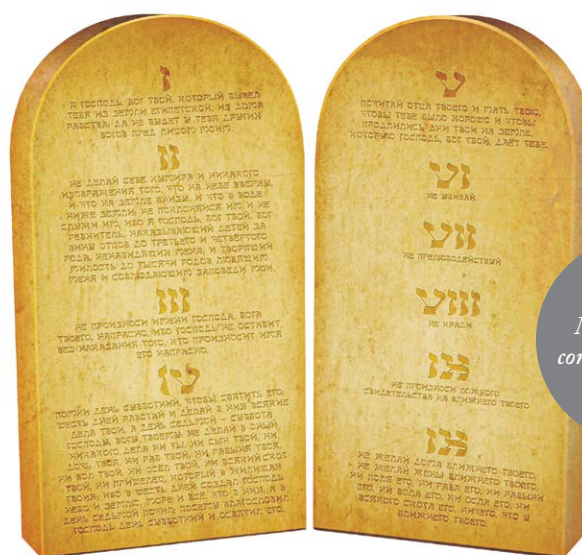 I
Я ГОСПОДЬ, БОГ ТВОЙ, КОТОРЫЙ ВЫВЕЛ
ТЕБЯ ИЗ ЗЕМЛИ ЕГИПЕТСКОЙ, ИЗ ДОМА
РАБСТВА; ДА НЕ БУДЕТ У ТЕБЯ ДРУГИХ
БОГОВ ПРЕД ЛИЦОМ МОИМ.
II
НЕ ДЕЛАЙ СЕБЕ КУМИРА И НИКАКОГО
ИЗОБРАЖЕНИЯ ТОГО, ЧТО НА НЕБЕ ВВЕРХУ,
И ЧТО НА ЗЕМЛЕ ВНИЗУ, И ЧТО В ВОДЕ
НИЖЕ ЗЕМЛИ; НЕ ПОКЛОНЯЙСЯ ИМ И НЕ
СЛУЖИ ИМ, ИБО Я ГОСПОДЬ, БОГ ТВОЙ, БОГ
РЕВНИТЕЛЬ, НАКАЗЫВАЮЩИЙ ДЕТЕЙ ЗА
ВИНУ ОТЦОВ ДО ТРЕТЬЕГО И ЧЕТВЁРТОГО
РОДА, НЕНАВИДЯЩИХ МЕНЯ, И ТВОРЯЩИЙ
МИЛОСТЬ ДО ТЫСЯЧИ РОДОВ ЛЮБЯЩИМ
МЕНЯ И СОБЛЮДАЮЩИМ ЗАПОВЕДИ МОИ.
III
НЕ ПРОИЗНОСИ ИМЕНИ ГОСПОДА, БОГА
ТВОЕГО, НАПРАСНО, ИБО ГОСПОДЬ НЕ ОСТАВИТ
БЕЗ НАКАЗАНИЯ ТОГО, КТО ПРОИЗНОСИТ ИМЯ
ЕГО НАПРАСНО.
IV
ПОМНИ ДЕНЬ СУББОТНИЙ, ЧТОБЫ СВЯТИТЬ ЕГО;
ШЕСТЬ ДНЕЙ РАБОТАЙ И ДЕЛАЙ В НИХ ВСЯКИЕ
ДЕЛА ТВОИ, А ДЕНЬ СЕДЬМОЙ – СУББОТА
ГОСПОДУ, БОГУ ТВОЕМУ: НЕ ДЕЛАЙ В ОНЫЙ
НИКАКОГО ДЕЛА НИ ТЫ, НИ СЫН ТВОЙ, НИ
ДОЧЬ ТВОЯ, НИ РАБ ТВОЙ, НИ РАБЫНЯ ТВОЯ,
НИ ВОЛ ТВОЙ, НИ ОСЁЛ ТВОЙ, НИ ВСЯКИЙ СКОТ
ТВОЙ, НИ ПРИШЕЛЕЦ, КОТОРЫЙ В ЖИЛИЩАХ
ТВОИХ; ИБО В ШЕСТЬ ДНЕЙ СОЗДАЛ ГОСПОДЬ
НЕБО И ЗЕМЛЮ, МОРЕ И ВСЁ, ЧТО В НИХ, А В
ДЕНЬ СЕДЬМОЙ ПОЧИЛ; ПОСЕМУ БЛАГОСЛОВИЛ
ГОСПОДЬ ДЕНЬ СУББОТНИЙ И ОСВЯТИЛ ЕГО.
V
ПОЧИТАЙ ОТЦА ТВОЕГО И МАТЬ ТВОЮ,
ЧТОБЫ ТЕБЕ БЫЛО ХОРОШО И ЧТОБЫ
ПРОДЛИЛИСЬ ДНИ ТВОИ НА ЗЕМЛЕ,
КОТОРУЮ ГОСПОДЬ, БОГ ТВОЙ, ДАЁТ ТЕБЕ.
VI
НЕ УБИВАЙ
VII
НЕ ПРЕЛЮБОДЕЙСТВУЙ
VIII
НЕ КРАДИ
IX
НЕ ПРОИЗНОСИ ЛОЖНОГО
СВИДЕТЕЛЬСТВА НА БЛИЖНЕГО ТВОЕГО
НЕ ЖЕЛАЙ ДОМА БЛИЖНЕГО ТВОЕГО;
НЕ ЖЕЛАЙ ЖЕНЫ БЛИЖНЕГО ТВОЕГО,
НИ ПОЛЯ ЕГО, НИ РАБА ЕГО, НИ РАБЫНИ
ЕГО, НИ ВОЛА ЕГО, НИ ОСЛА ЕГО, НИ
ВСЯКОГО СКОТА ЕГО, НИЧЕГО, ЧТО У
БЛИЖНЕГО ТВОЕГО.